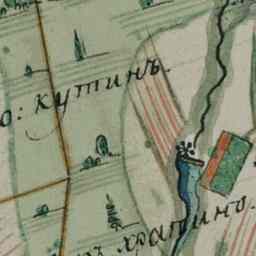 о: кутинъ.
ъ храпино.